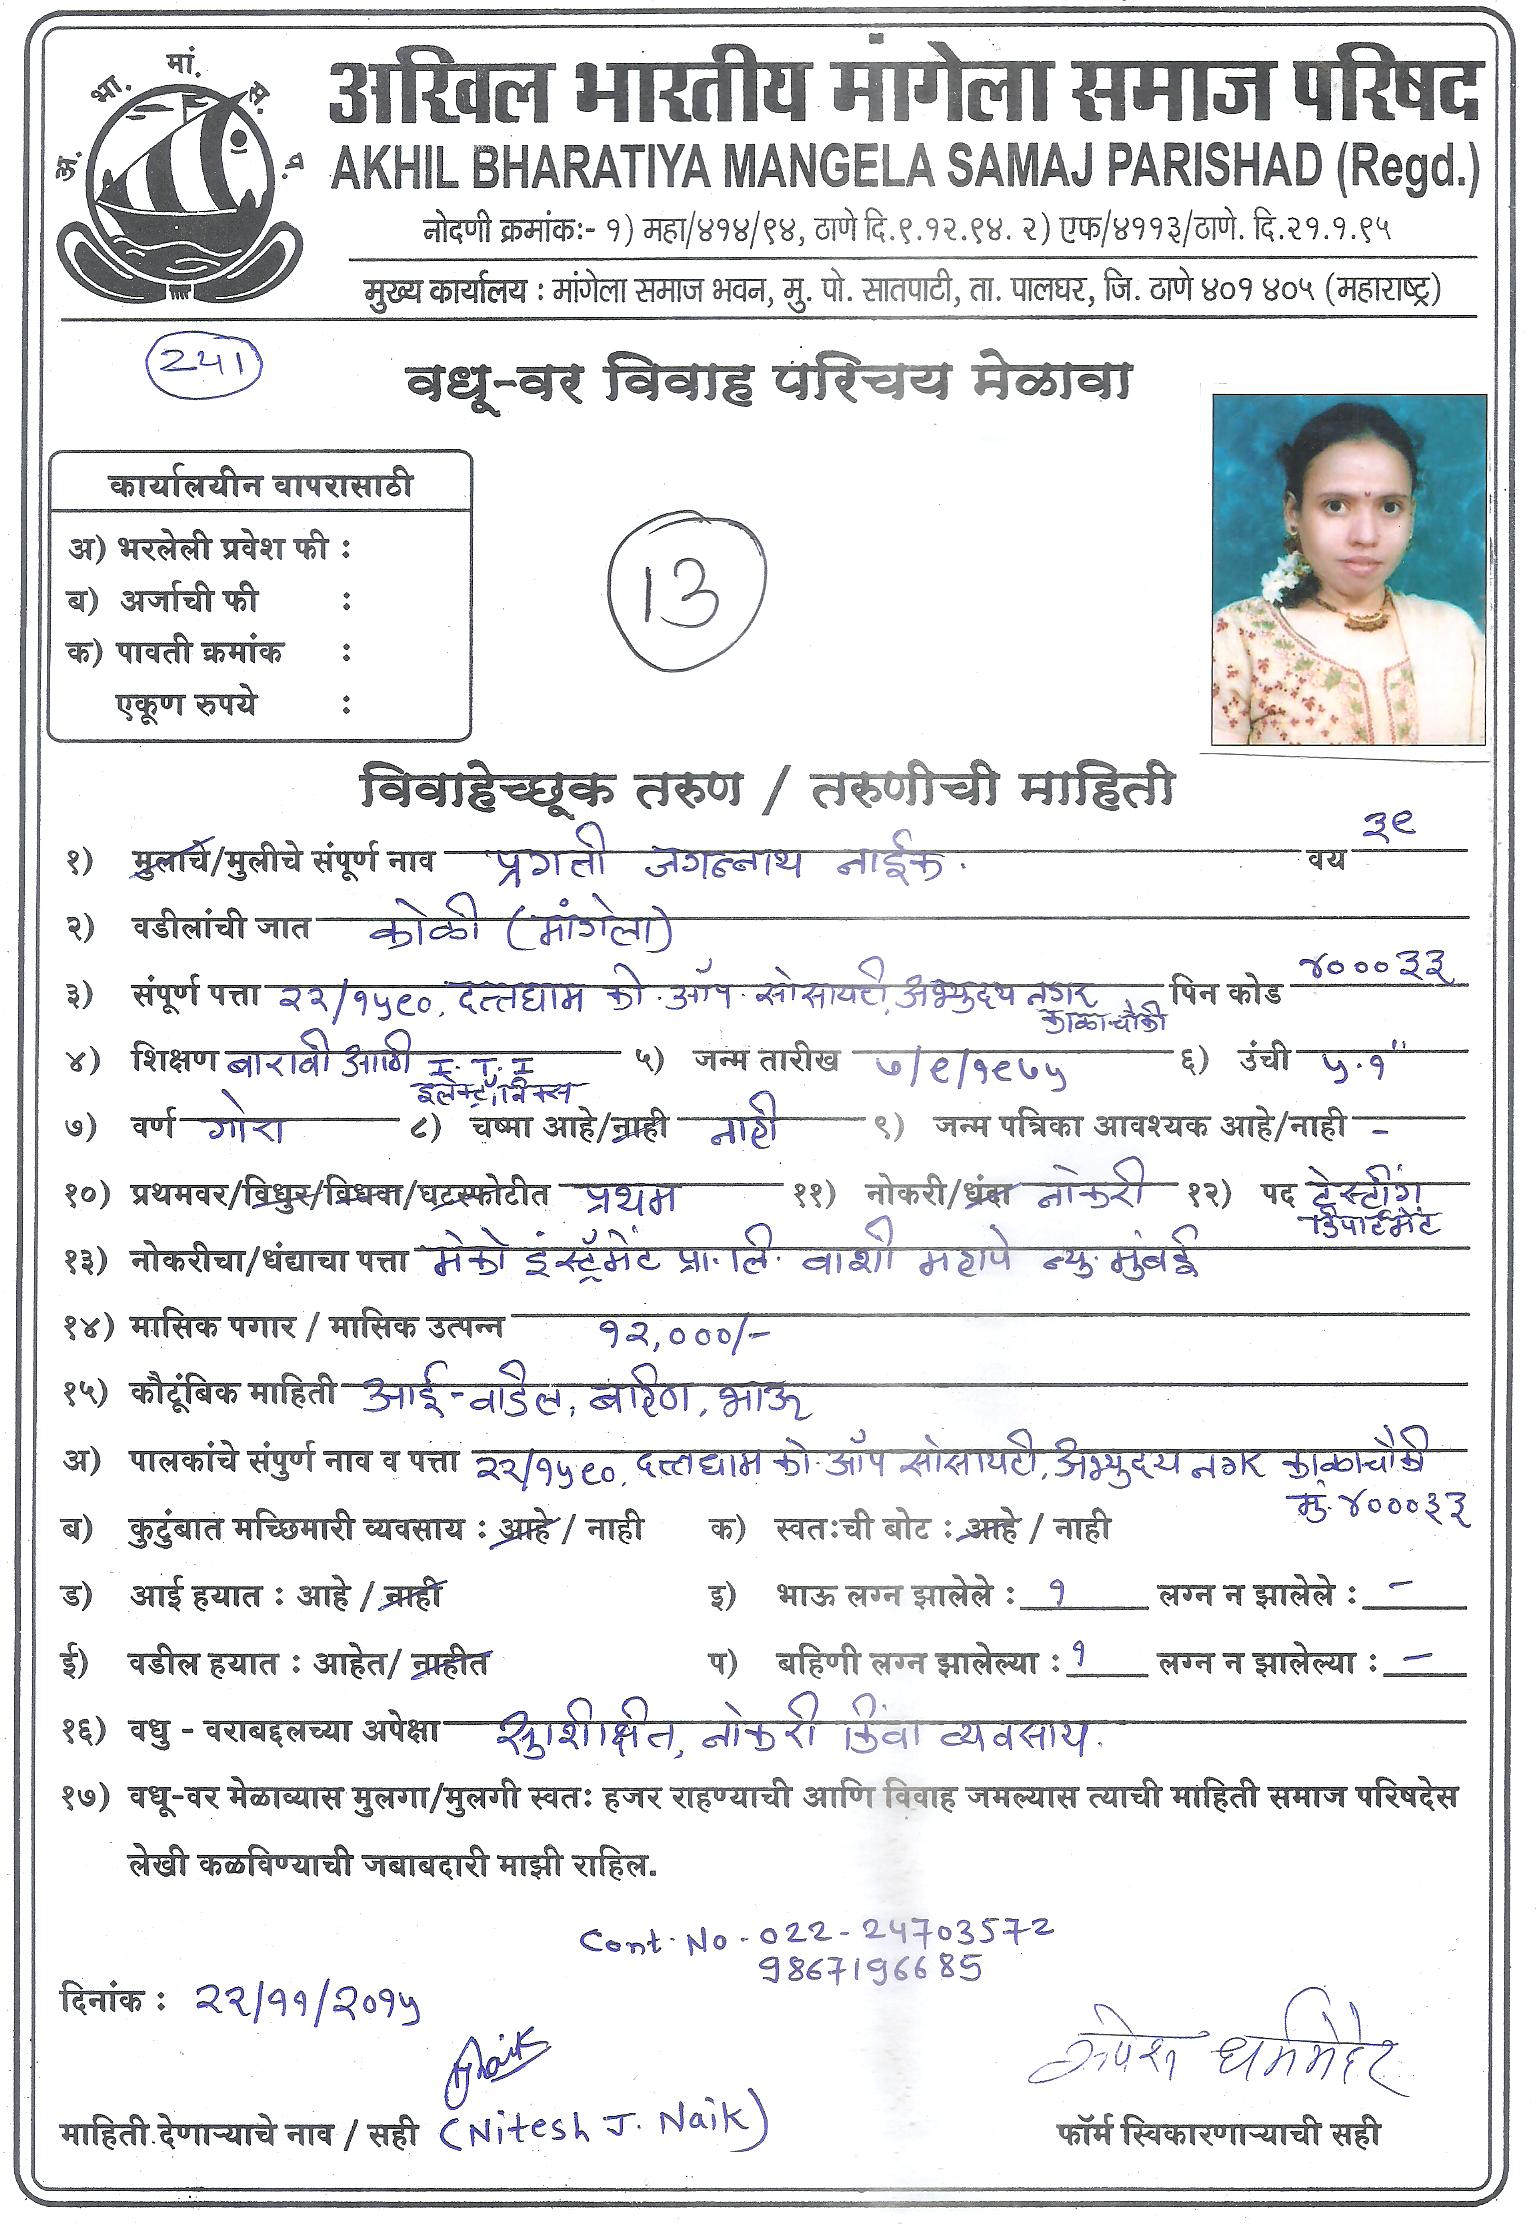 अ. भा. मां. स. प.
अखिल भारतीय मांगेला समाज परिषद
AKHIL BHARATIYA MANGELA SAMAJ PARISHAD (Regd.)
नोदणी क्रमांकः- १) महा/४१४/९४, ठाणे दि.९.१२.९४. २) एफ/४११३/ठाणे. दि.२१.१.९५
मुख्य कार्यालय : मांगेला समाज भवन, मु. पो. सातपाटी, ता. पालघर, जि. ठाणे ४०१ ४०५ (महाराष्ट्र)
241
वधू-वर विवाह परिचय मेळावा
कार्यालयीन वापरासाठी
अ) भरलेली प्रवेश फी :
ब) अर्जाची फी :
क) पावती क्रमांक :
एकूण रुपये :
13
विवाहेच्छूक तरुण / तरुणीची माहिती
१) मुलाचे/मुलीचे संपूर्ण नाव प्रगती जगन्नाथ नाईक. वय ३९
२) वडीलांची जात कोळी (मांगेला)
३) संपूर्ण पत्ता २२/१५९०, दत्तधाम को. ऑप. सोसायटी, अभ्युदय नगर काळाचौकी पिन कोड ४०००३३
४) शिक्षण बारावी आणि I. T. I इलेक्ट्रॉनिक्स ५) जन्म तारीख ७/९/१९७५ ६) उंची ५.१"
७) वर्ण गोरा ८) चष्मा आहे/नाही नाही ९) जन्म पत्रिका आवश्यक आहे/नाही -
१०) प्रथमवर/विधुर/विधवा/घटस्फोटीत प्रथम ११) नोकरी/धंदा नोकरी १२) पद टेस्टींग डिपार्टमेंट
१३) नोकरीचा/धंद्याचा पत्ता मेको इंस्ट्रूमेंट प्रा. लि. वाशी महापे न्यु. मुंबई
१४) मासिक पगार / मासिक उत्पन्न १२,०००/-
१५) कौटूंबिक माहिती आई-वडिल, बहिण, भाऊ
अ) पालकांचे संपुर्ण नाव व पत्ता २२/१५९०, दत्तधाम को. ऑप सोसायटी, अभ्युदय नगर काळाचौकी
मुं. ४०००३३
ब) कुटुंबात मच्छिमारी व्यवसाय : आहे / नाही क) स्वतःची बोट : आहे / नाही
ड) आई हयात : आहे / नाही इ) भाऊ लग्न झालेले : १ लग्न न झालेले : -
ई) वडील हयात : आहेत/ नाहीत प) बहिणी लग्न झालेल्या : १ लग्न न झालेल्या : -
१६) वधु - वराबद्दलच्या अपेक्षा सुशीक्षीत, नोकरी किंवा व्यवसाय.
१७) वधू-वर मेळाव्यास मुलगा/मुलगी स्वतः हजर राहण्याची आणि विवाह जमल्यास त्याची माहिती समाज परिषदेस
लेखी कळविण्याची जबाबदारी माझी राहिल.
Cont. No. - 022 - 24703572
9867196685
दिनांक : २२/११/२०१५
Naik
माहिती देणाऱ्याचे नाव / सही (Nitesh J. Naik) फॉर्म स्विकारणाऱ्याची सही